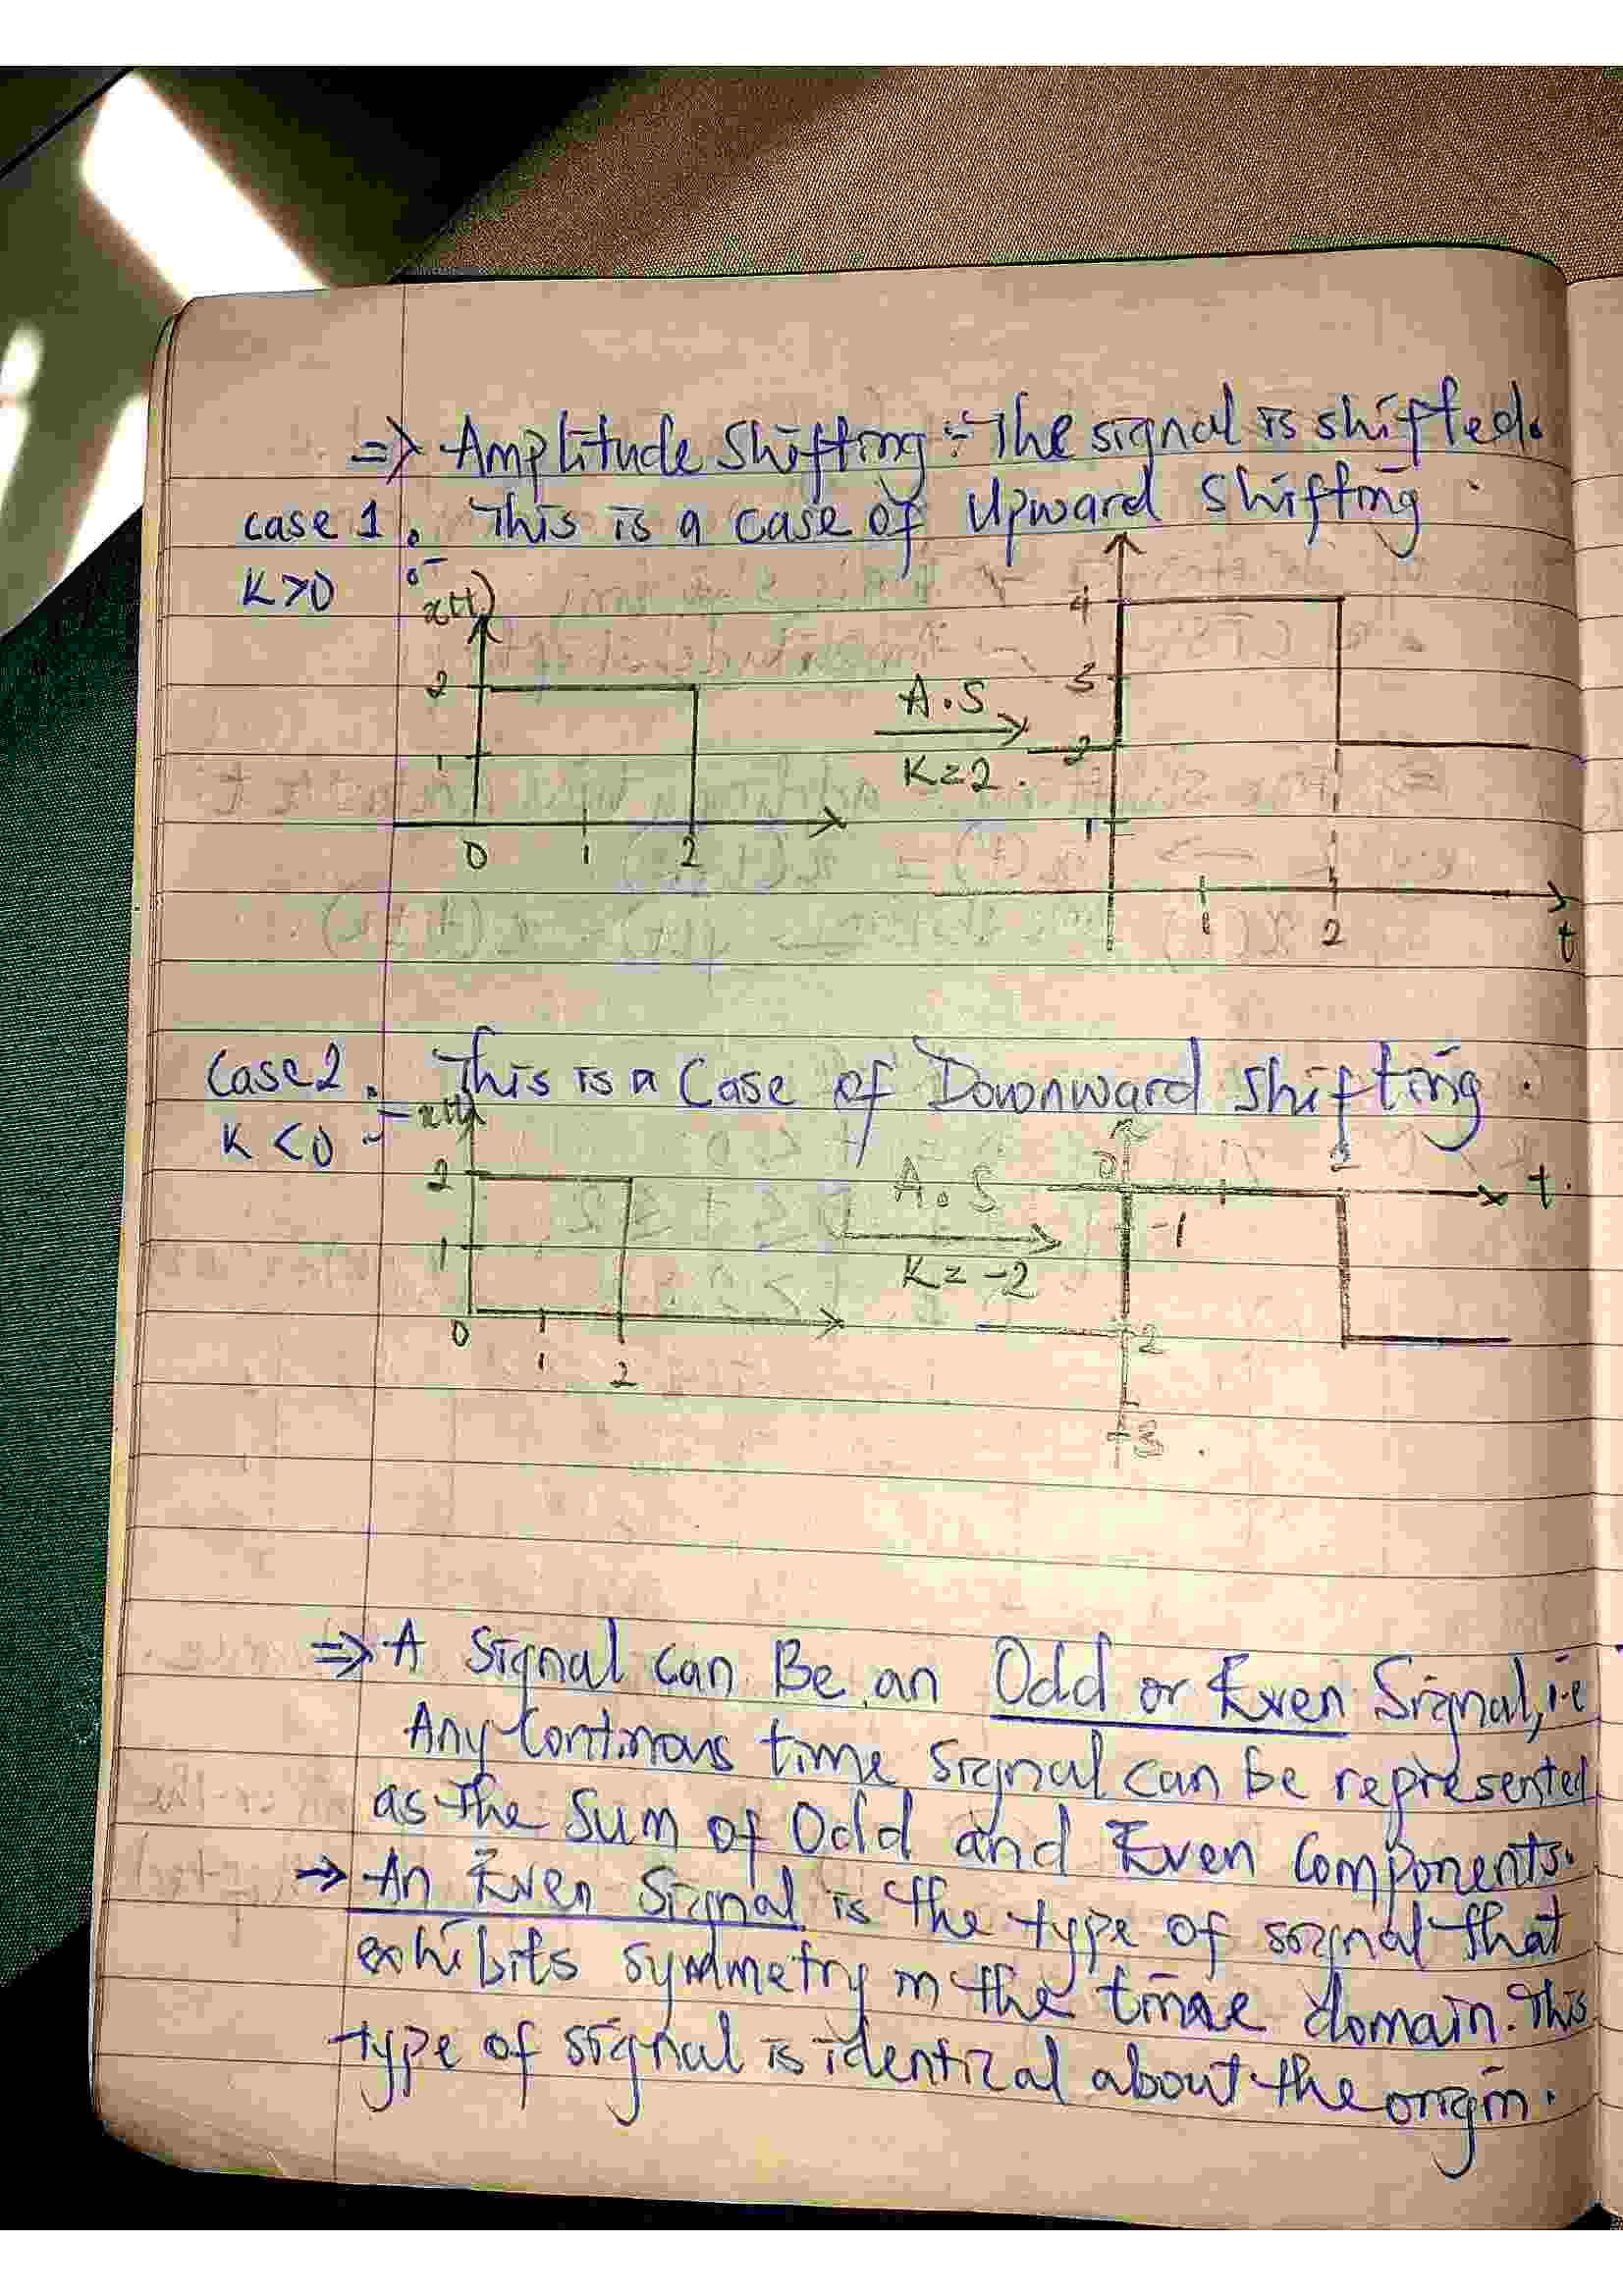 => Amplitude Shifting :- The signal is shifted.
case 1 :- This is a case of Upward Shifting
K>0
x(t)
2
1
0 1 2
A.S
K=2.
4
3
2
1
1 2 t
Case 2 :- This is a Case of Downward Shifting.
K<0
x(t)
2
1
0 1 2
A.S
K=-2
0 2 t.
-1
-2
-3
=> A Signal can Be an Odd or Even Signal, i.e
Any Continous time signal can be represented
as the Sum of Odd and Even Components.
→ An Even Signal is the type of signal that
exhibits symmetry in the time domain. This
type of signal is identical about the origin.